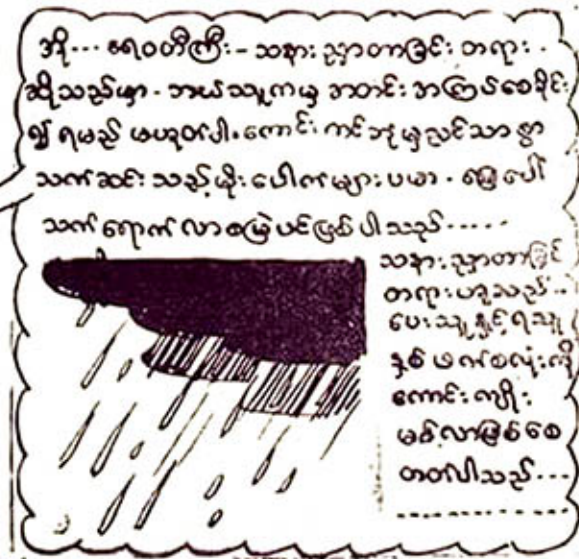 အို--- ရေဝတီကြီး- သနား ညှာတာခြင်း တရား -
ဆိုသည်မှာ - ဘယ်သူကမှ အတင်း အကြပ်စေခိုင်း
၍ ရမည် မဟုတ်ပါ။ ကောင်း ကင်ဘုံ မှ လှင်သာ စွာ
သက်ဆင်း သည့် မိုး ပေါက်များ ပမာ - မြေ ပေါ်
သက် ရောက် လာ စမြဲ ပင် ဖြစ် ပါ သည် -----
သနား ညှာတာခြင်း
တရား ဟူသည် --
ပေး သူ နှင့် ရ သူ
နှစ် ဖက် စလုံး ကို
ကောင်း ကျိုး
မင်္ဂလာ ဖြစ် စေ
တတ်ပါသည် ---